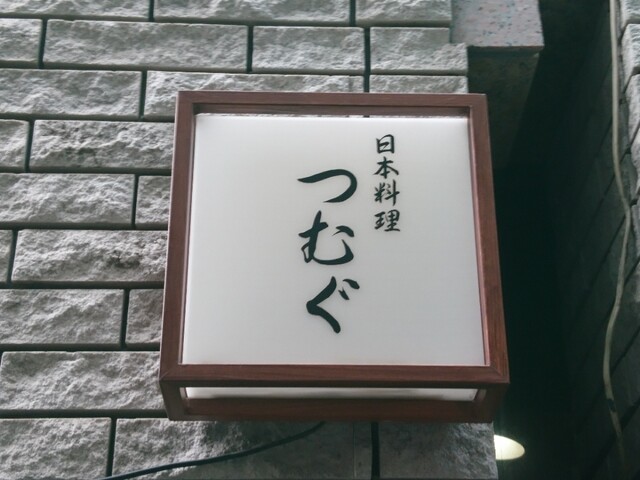 日本料理
つむぐ